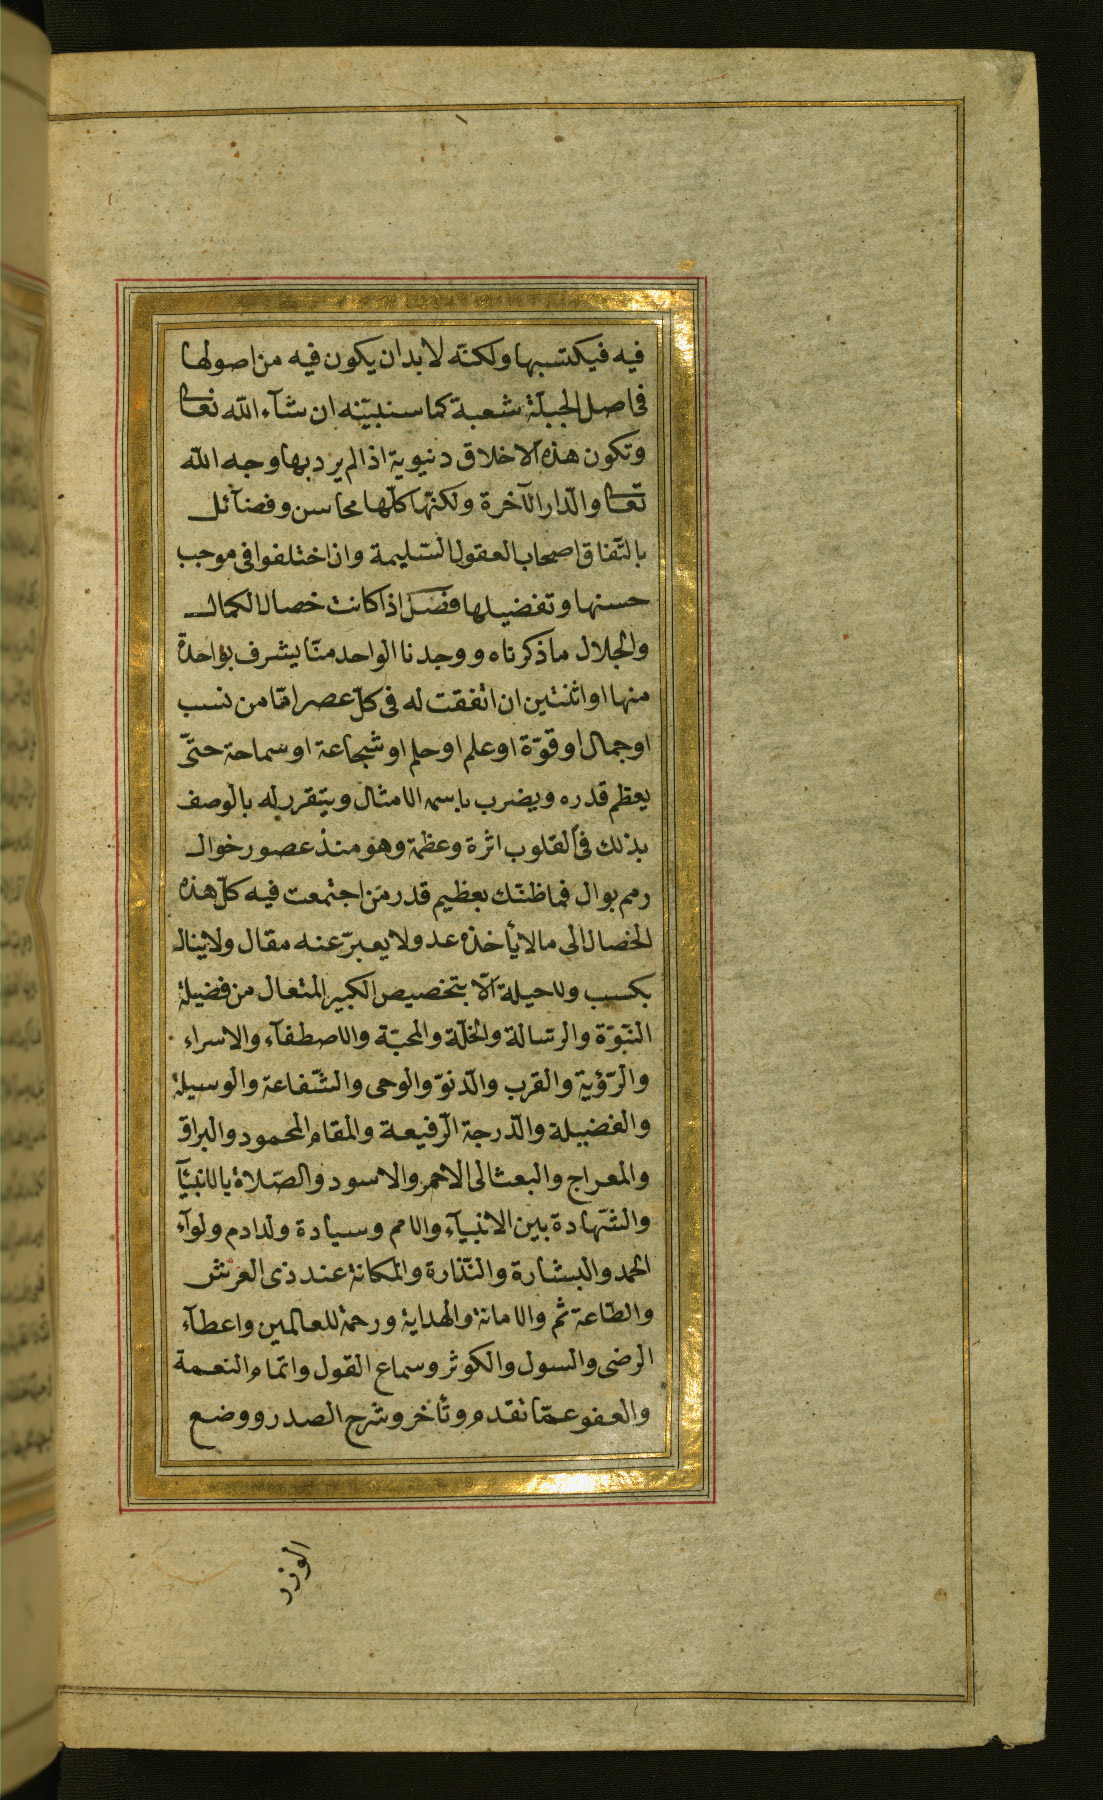 فيه فيكتسبها ولكنّه لا بد ان يكون فيه من اصولها
فى اصل الجبلّة شعبة كما سنبيّنه ان شآء اللّه تعالى
وتكون هذه الاخلاق دنيوية اذا لم يرد بها وجه اللّه
تعالى والدّار الآخرة ولكنّها كلّها محاسن وفضآئل
باتّفاق اصحاب العقول السّليمة وان اختلفوا فى موجب
حسنها وتفضيلها فصل اذا كانت خصال الكمال
والجلال ما ذكرناه ووجدنا الواحد منّا يشرف بواحدة
منها او اثنتين ان اتفقت له فى كلّ عصر امّا من نسب
او جمال او قوّة او علم او حلم او شجاعة او سماحة حتّى
يعظم قدره ويضرب باسمه الامثال ويتقرر له بالوصف
بذلك فى القلوب اثرة وعظمة وهو منذ عصور خوال
رمم بوال فما ظنّك بعظيم قدر من اجتمعت فيه كلّ هذه
الخصال الى ما لا يأخذه عد ولا يعبرّ عنه مقال ولا ينال
بكسب ولا حيلة الّا بتخصيص الكبير المتعال من فضيلة
النّبوّة والرّسالة والخلّة والمحبّة والاصطفآء والاسراء
والرّؤية والقرب والدّنوّ والوحى والشّفاعة والوسيلة
والفضيلة والدّرجة الرّفيعة والمقام المحمود والبراق
والمعراج والبعث الى الاحمر والاسود والصّلاة بالانبيآء
والشّهادة بين الانبيآء والامم وسيادة ولد ادم ولوآء
الحمد والبشارة والنّذارة والمكانة عند ذى العرش
والطّاعة ثم والامانة والهداية ورحمة للعالمين واعطآء
الرضى والسول والكوثر وسماع القول واتمام النعمة
والعفو عمّا تقدم وتأخر وشرح الصدر ووضع
الوزر